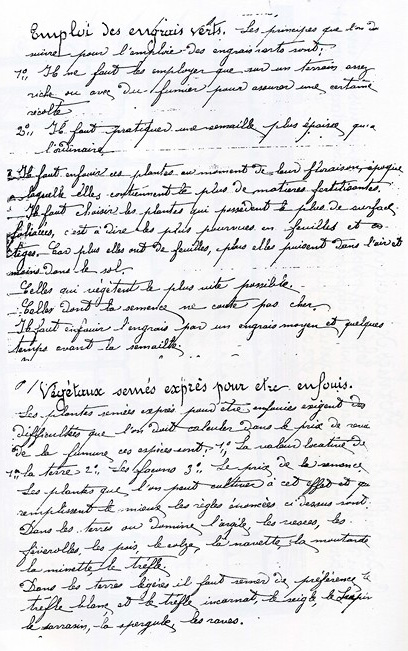 Emploi des engrais verts. Les principes que l'on doit
suivre pour l'emploie des engrais verts sont:
1º. Il ne faut les employer que sur un terrain assez
riche ou avec du fumier pour assurer une certaine
récolte
2º. Il faut pratiquer une semaille plus épaisse qu'à
l'ordinaire
3 Il faut enfouir ces plantes au moment de leur floraison, époque
a laquelle elles contiennent le plus de matières fertilisantes
Il faut choisir les plantes qui possèdent le plus de surface
foliacées, c'est à dire les plus pourvues en feuilles et en
tiges. Car plus elles ont de feuilles, plus elles puisent dans l'air et
moins dans le sol.
Celles qui végètent le plus vite possible.
Celles dont la semence ne coute pas cher.
Il faut enfouir l'engrais par un engrais moyen et quelques
temps avant la semaille.
Végétaux semés exprès pour etre enfouis.
Les plantes semées exprès pour être enfouies exigent des
difficultées que l'on doit calculer dans le prix de revient
de la fumure ces espices sont: 1º. La valeur locative de
la terre 2º. Les façons 3º. Le prix de la semence
Les plantes que l'on peut cultiver à cet effet et qui
remplissent le mieux les règles énoncées ci dessus sont:
Dans les terres ou domine l'argile, les vesces, les
féverolles, les pois, le colza, la navette, la moutarde
la minette le trèfle.
Dans les terres légères il faut semer de préférence le
trèfle blanc et le trèfle incarnat, le seigle, le lupin
le sarrasin, la spergule, les raves.